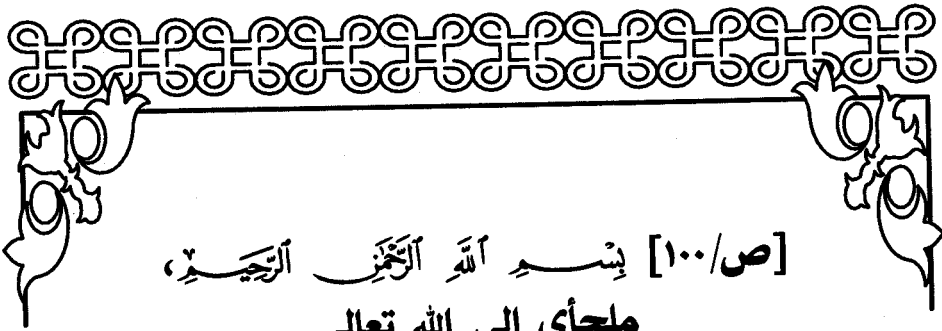 [ص/١٠٠] بِسْمِ ٱللَّهِ ٱلرَّحْمَٰنِ ٱلرَّحِيمِ،
ملجأي إلى الله تعالى